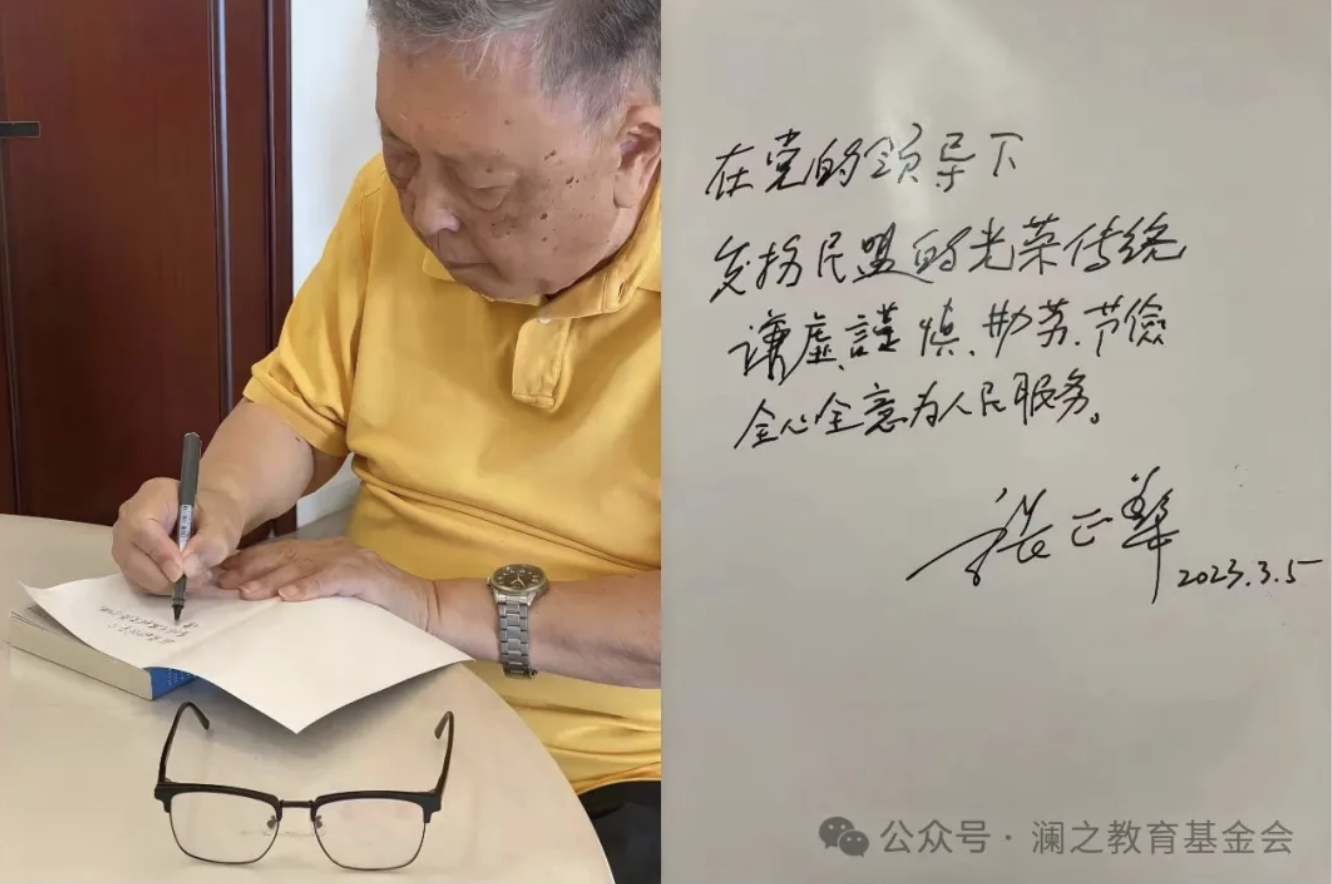 在党的领导下
发扬民盟的光荣传统
谦虚、謹慎、勤劳、节儉
全心全意为人民服务。
张正華
2023.3.5
公众号·澜之教育基金会